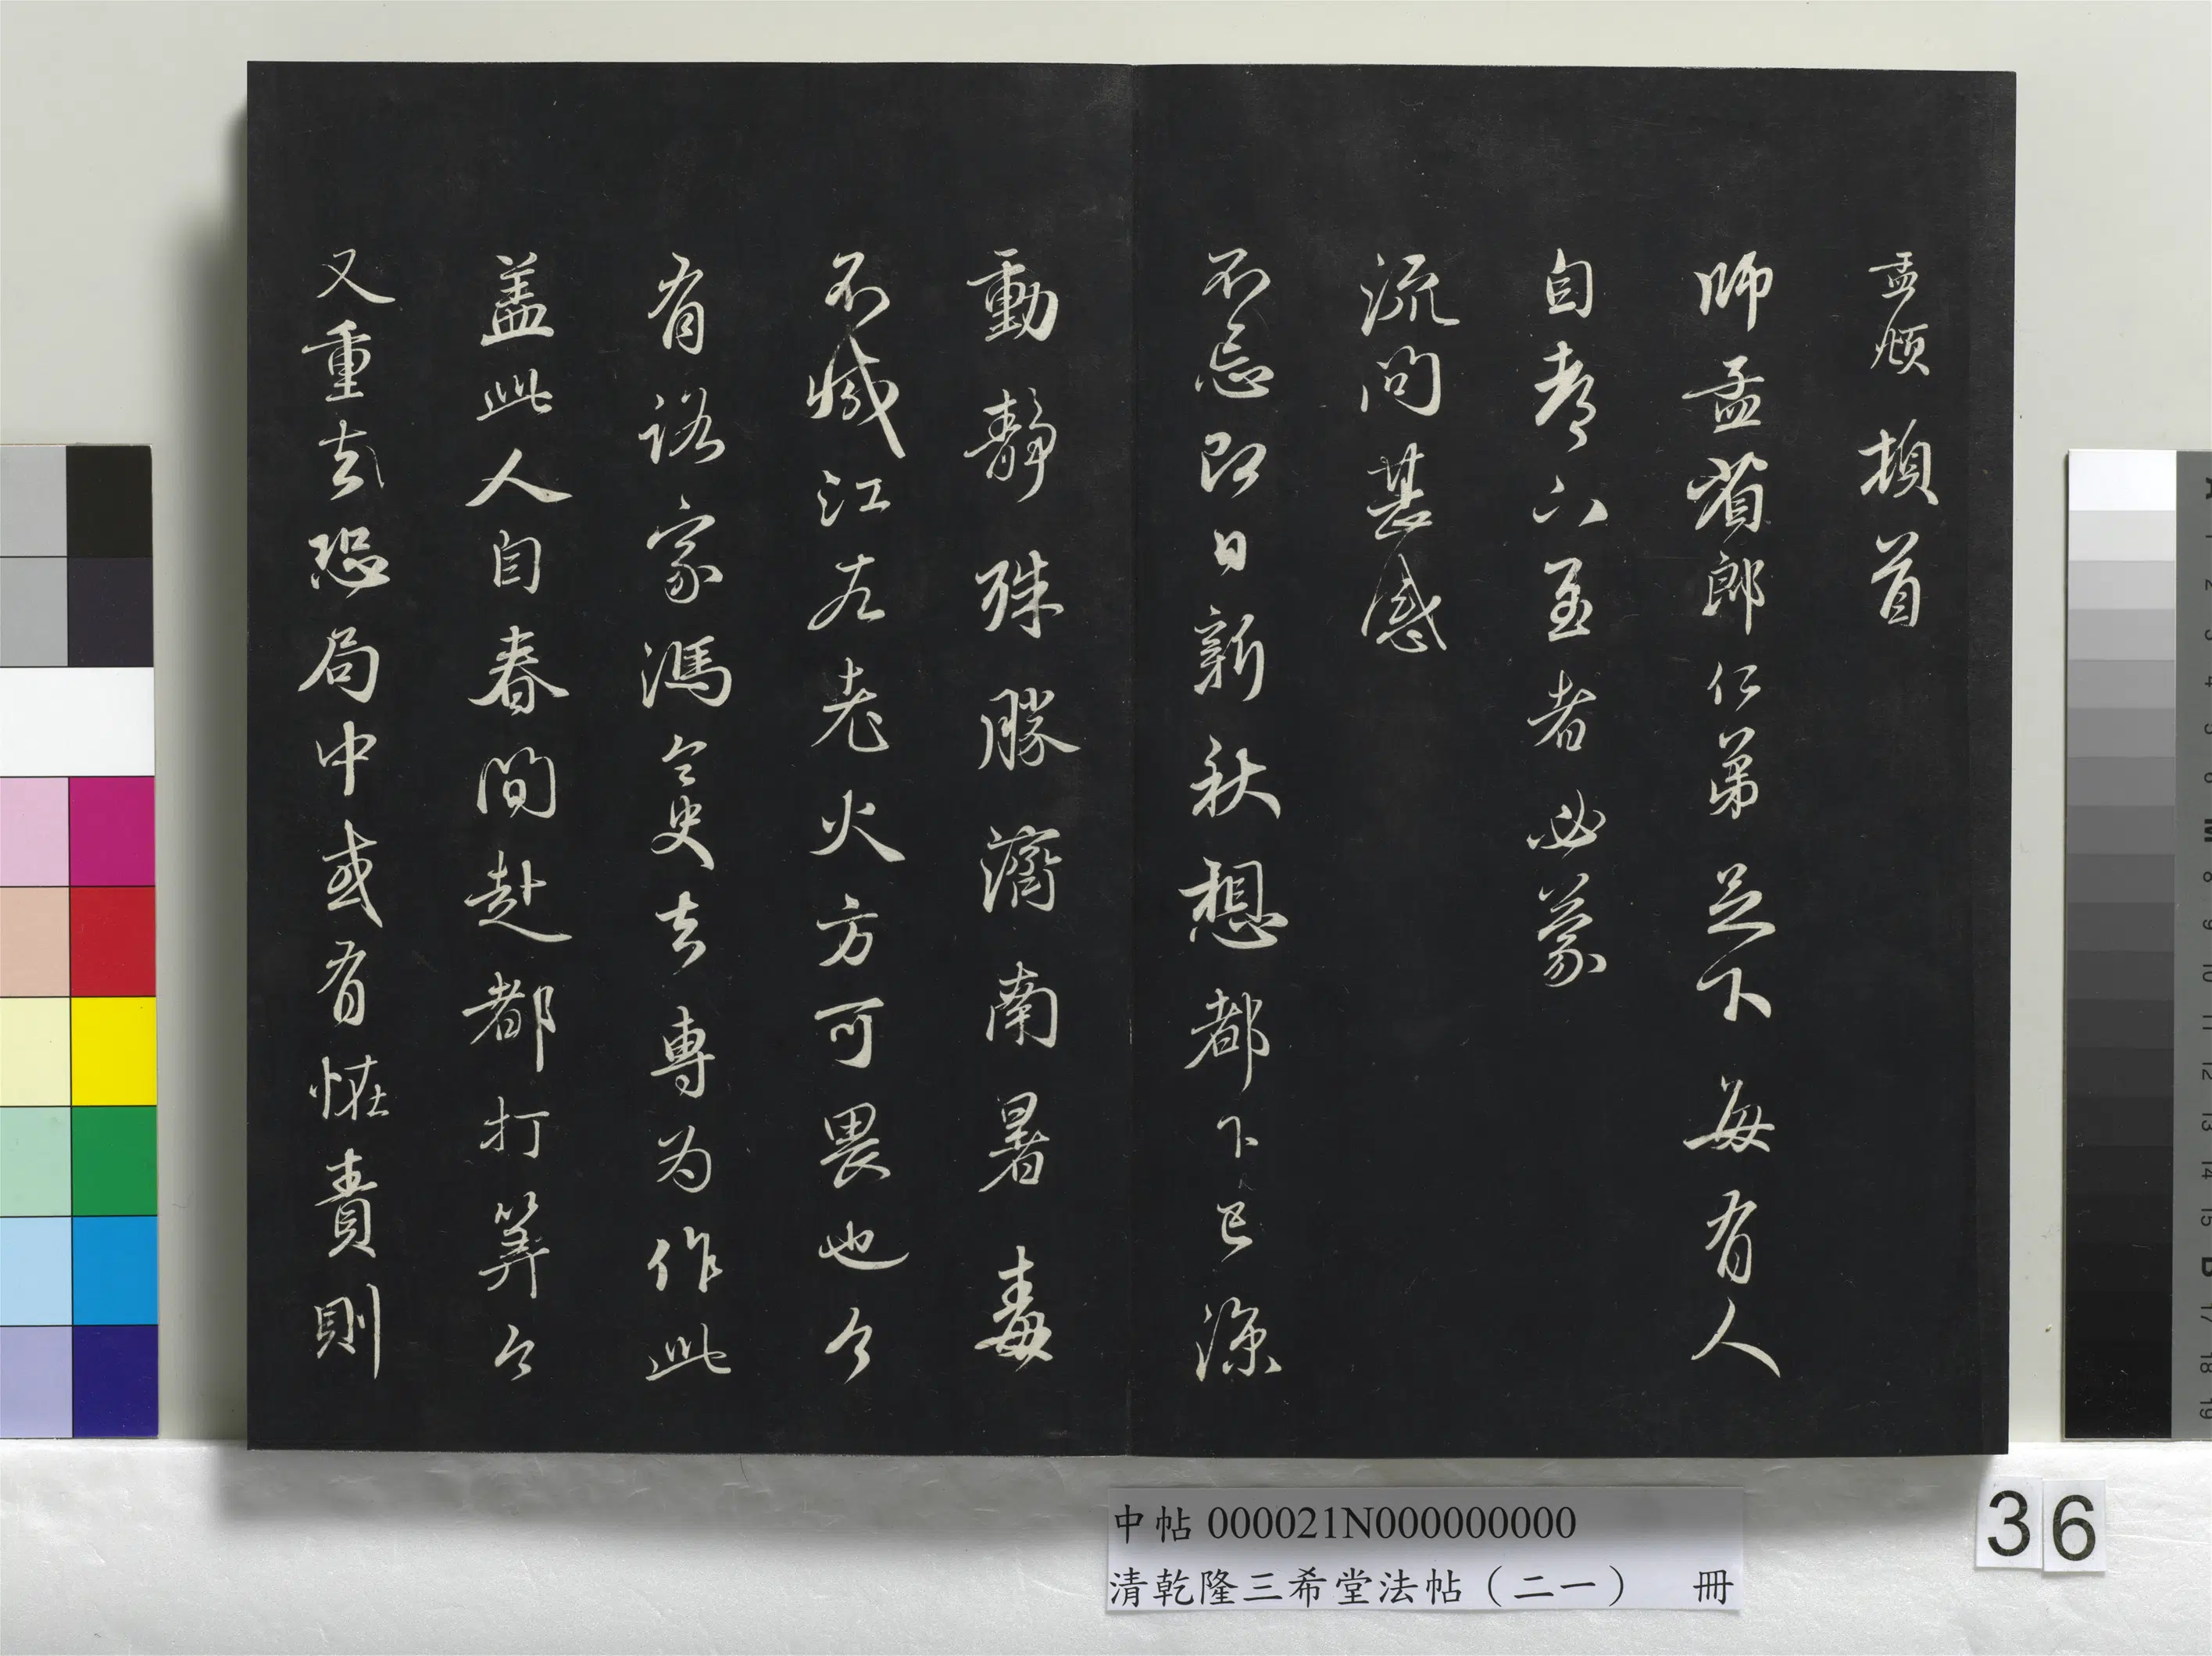 孟頫頓首
師孟省郎仁弟足下每有人
自都下至者必蒙
流問甚感
不忘即日新秋想都下已涼
動靜殊勝濟南暑毒
不減江左老火方可畏也今
有路家馮令史去專为作此
盖此人自春間赴都打算今
又重去恐局中或有恠責則
中帖 000021N000000000
清乾隆三希堂法帖（二一） 冊
36